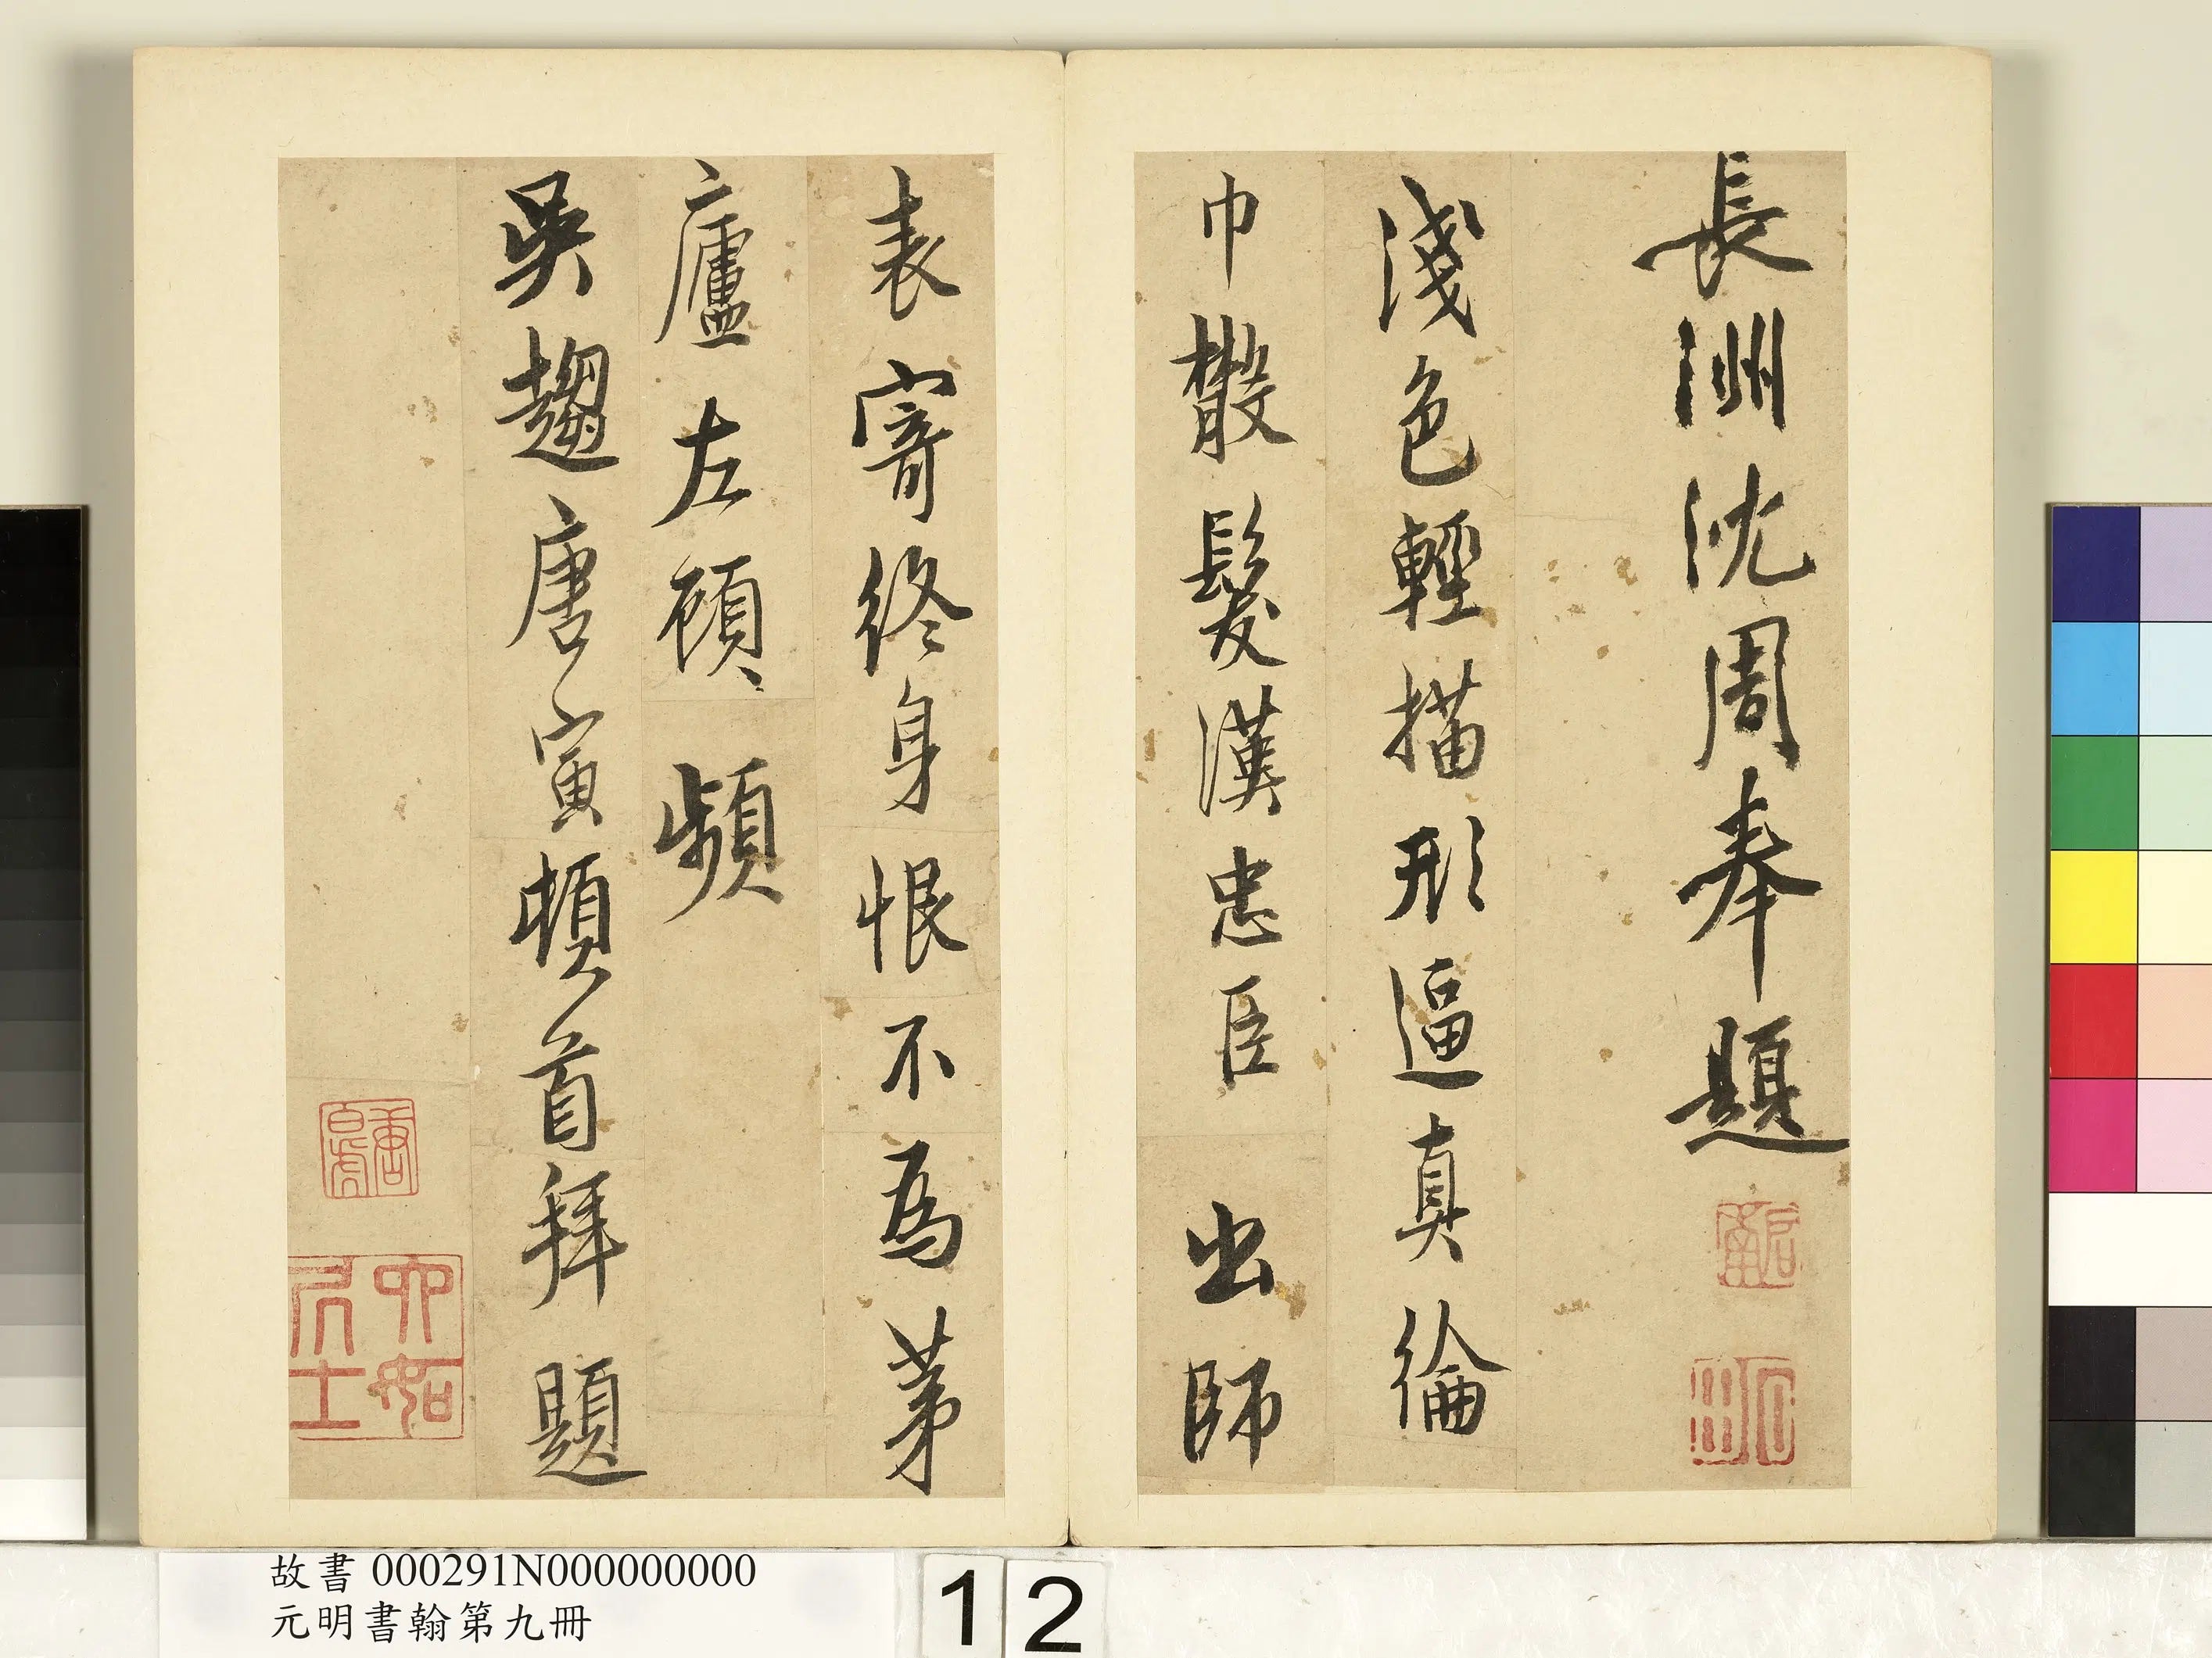 長洲沈周奉題
淺色輕描形逼真綸
巾散髮漢忠臣出師
表寄終身恨不為茅
廬左顧頻
吳趨唐寅頓首拜題
啟南
石田
唐白虎
六如居士
故書 000291N000000000
元明書翰第九冊
12